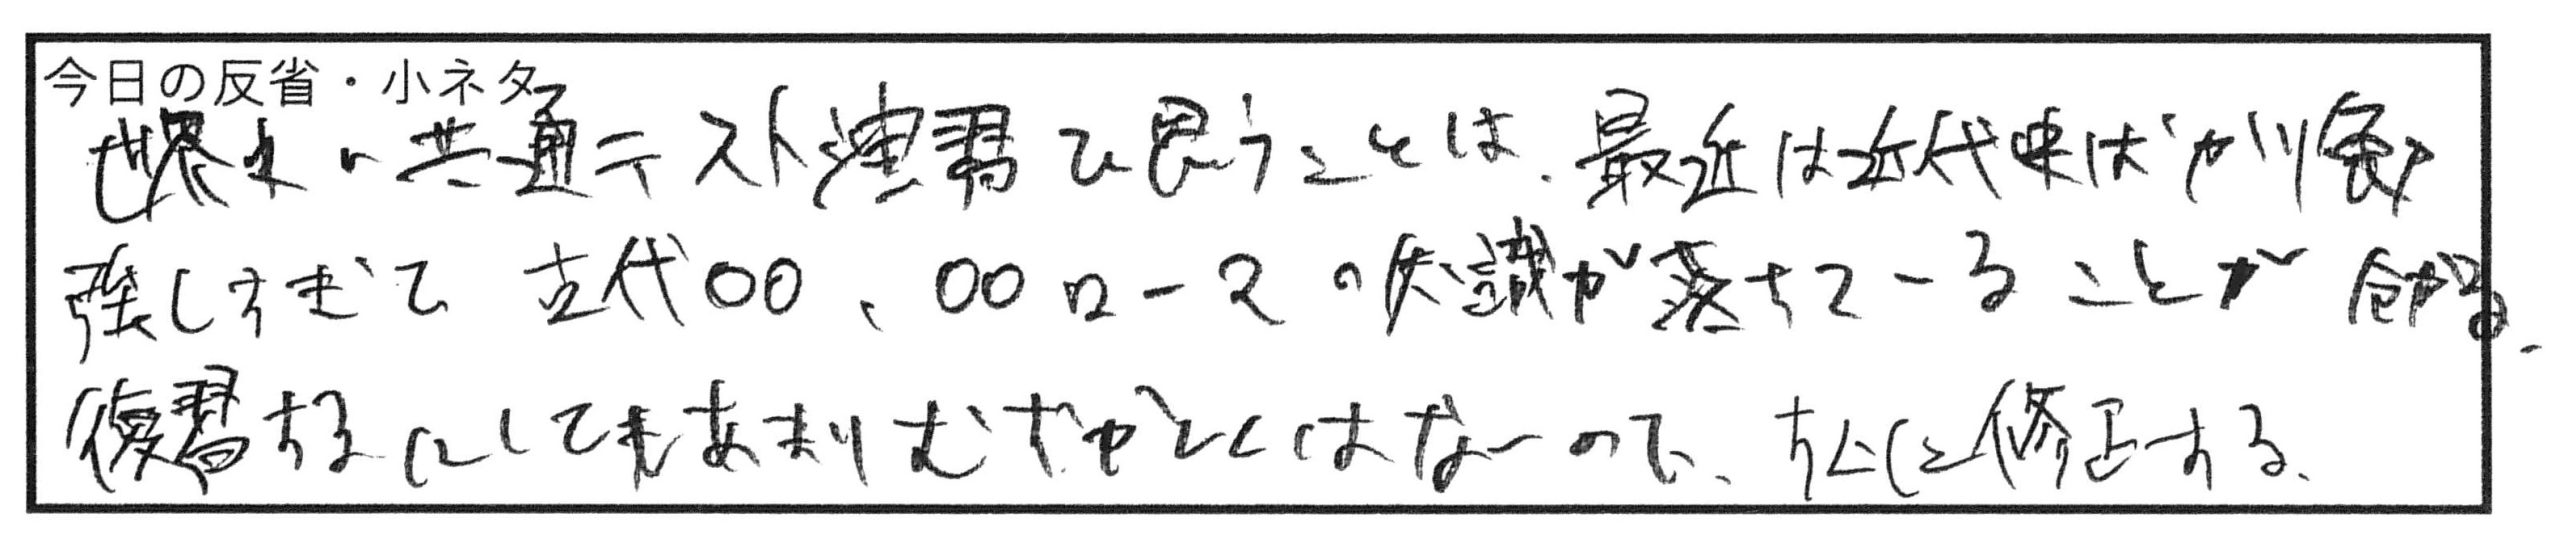 今日の反省・小ネタ
世界史の共通テスト演習で思うことは、最近は近代史ばかり勉
強しすぎて 古代〇〇、〇〇ロースの知識が落ちていることが分かる。
復習するにしてもあまりむずかしくはないので、すぐに修正する。